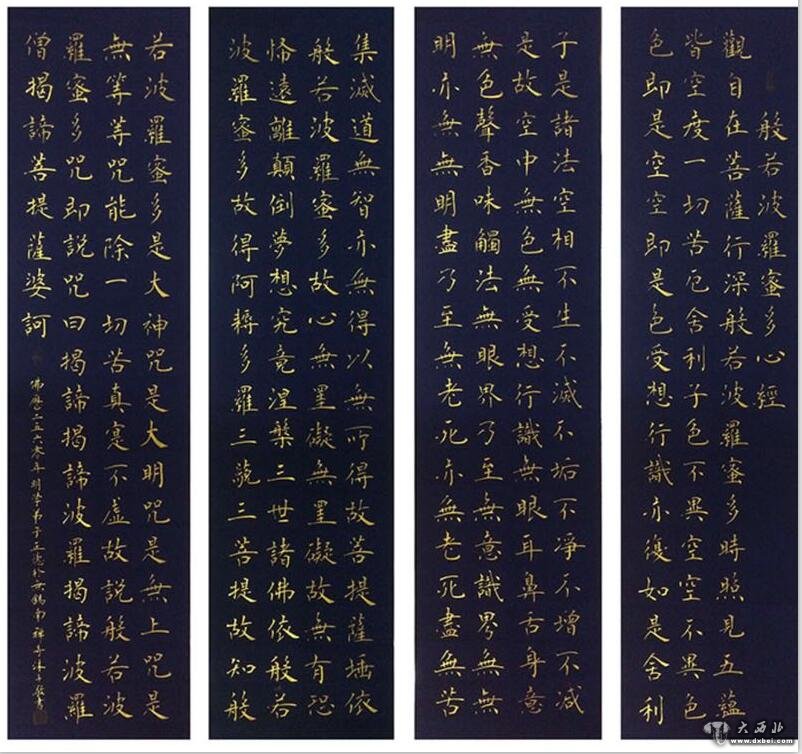 般若波羅蜜多心經
觀自在菩薩行深般若波羅蜜多時照見五蘊
皆空度一切苦厄舍利子色不異空空不異色
色即是空空即是色受想行識亦復如是舍利
子是諸法空相不生不滅不垢不淨不增不減
是故空中無色無受想行識無眼耳鼻舌身意
無色聲香味觸法無眼界乃至無意識界無無
明亦無無明盡乃至無老死亦無老死盡無苦
集滅道無智亦無得以無所得故菩提薩埵依
般若波羅蜜多故心無罣礙無罣礙故無有恐
怖遠離顛倒夢想究竟涅槃三世諸佛依般若
波羅蜜多故得阿耨多羅三藐三菩提故知般
若波羅蜜多是大神咒是大明咒是無上咒是
無等等咒能除一切苦真寔不虛故說般若波
羅蜜多咒即說咒曰揭諦揭諦波羅揭諦波羅
僧揭諦菩提薩婆訶
佛歷二五六零年弟子於無錫南禪寺沐手敬書
大西北
www.dxbei.com